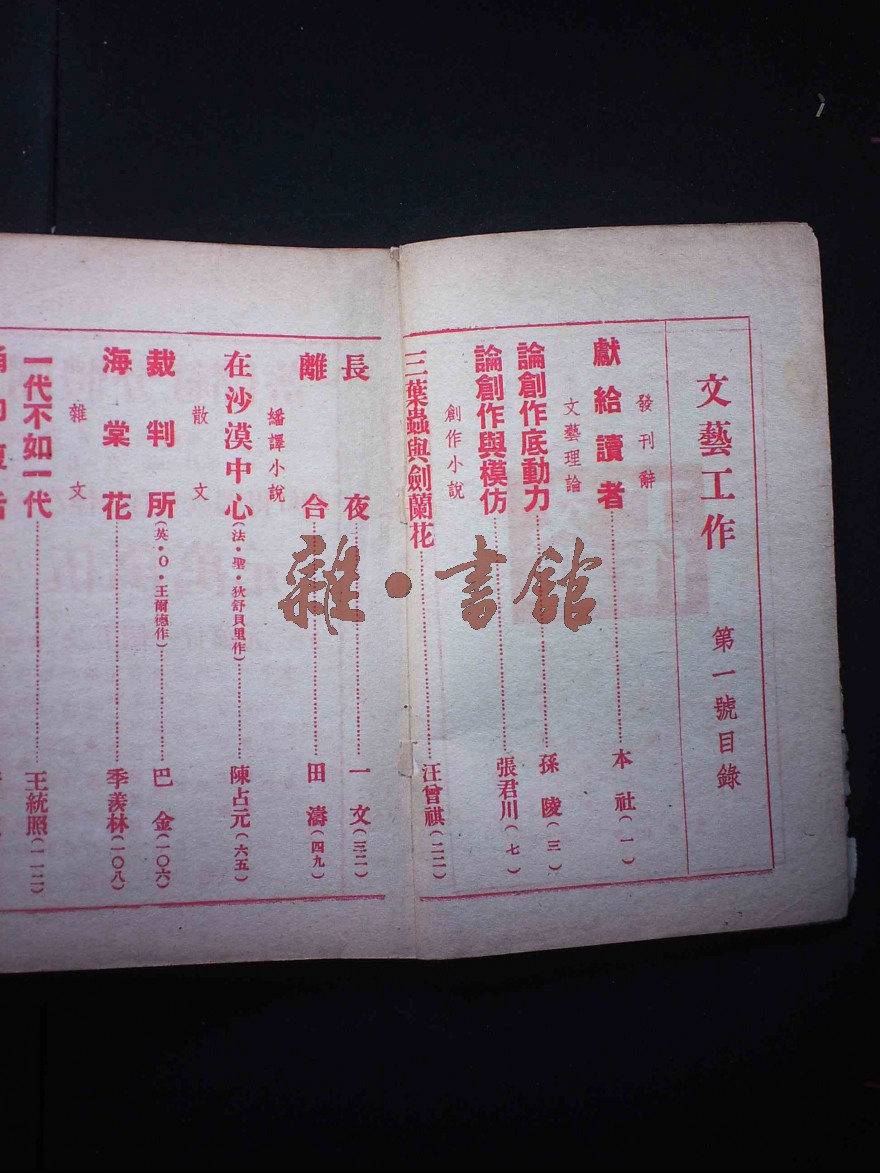 文藝工作 第一號目錄
發刊辭
獻給讀者 本社(一)
文藝理論
論創作底動力 孫陵(三)
論創作與模仿 張君川(七)
創作小說
三葉蟲與劍蘭花 汪曾祺(二二)
長夜 一文(三二)
離合 田濤(四九)
繙譯小說
在沙漠中心(法·聖·狄舒貝里作) 陳占元(六五)
散文
裁判所(英·O·王爾德作) 巴金(一〇六)
海棠花 季羨林(一〇八)
雜文
一代不如一代 王統照(一一二)
雜·書館